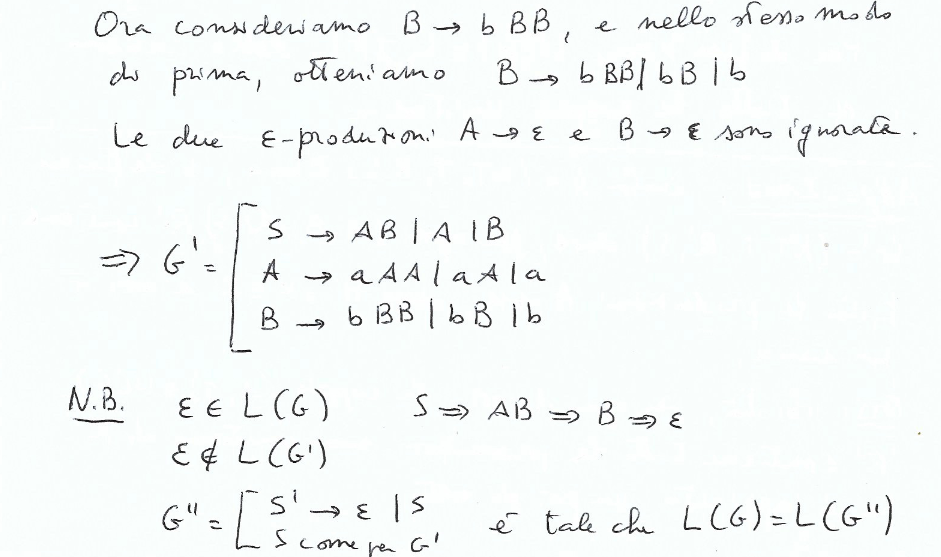 Ora consideriamo B → b BB, e nello stesso modo
di prima, otteniamo B → b BB | bB | b
Le due ε-produzioni A → ε e B → ε sono ignorate.
⇒ G' = [ S → AB | A | B
A → aAA | aA | a
B → bBB | bB | b
N.B. ε ∈ L(G) S ⇒ AB ⇒ B ⇒ ε
ε ∉ L(G')
G'' = [ S' → ε | S
S come per G' è tale che L(G) = L(G'')